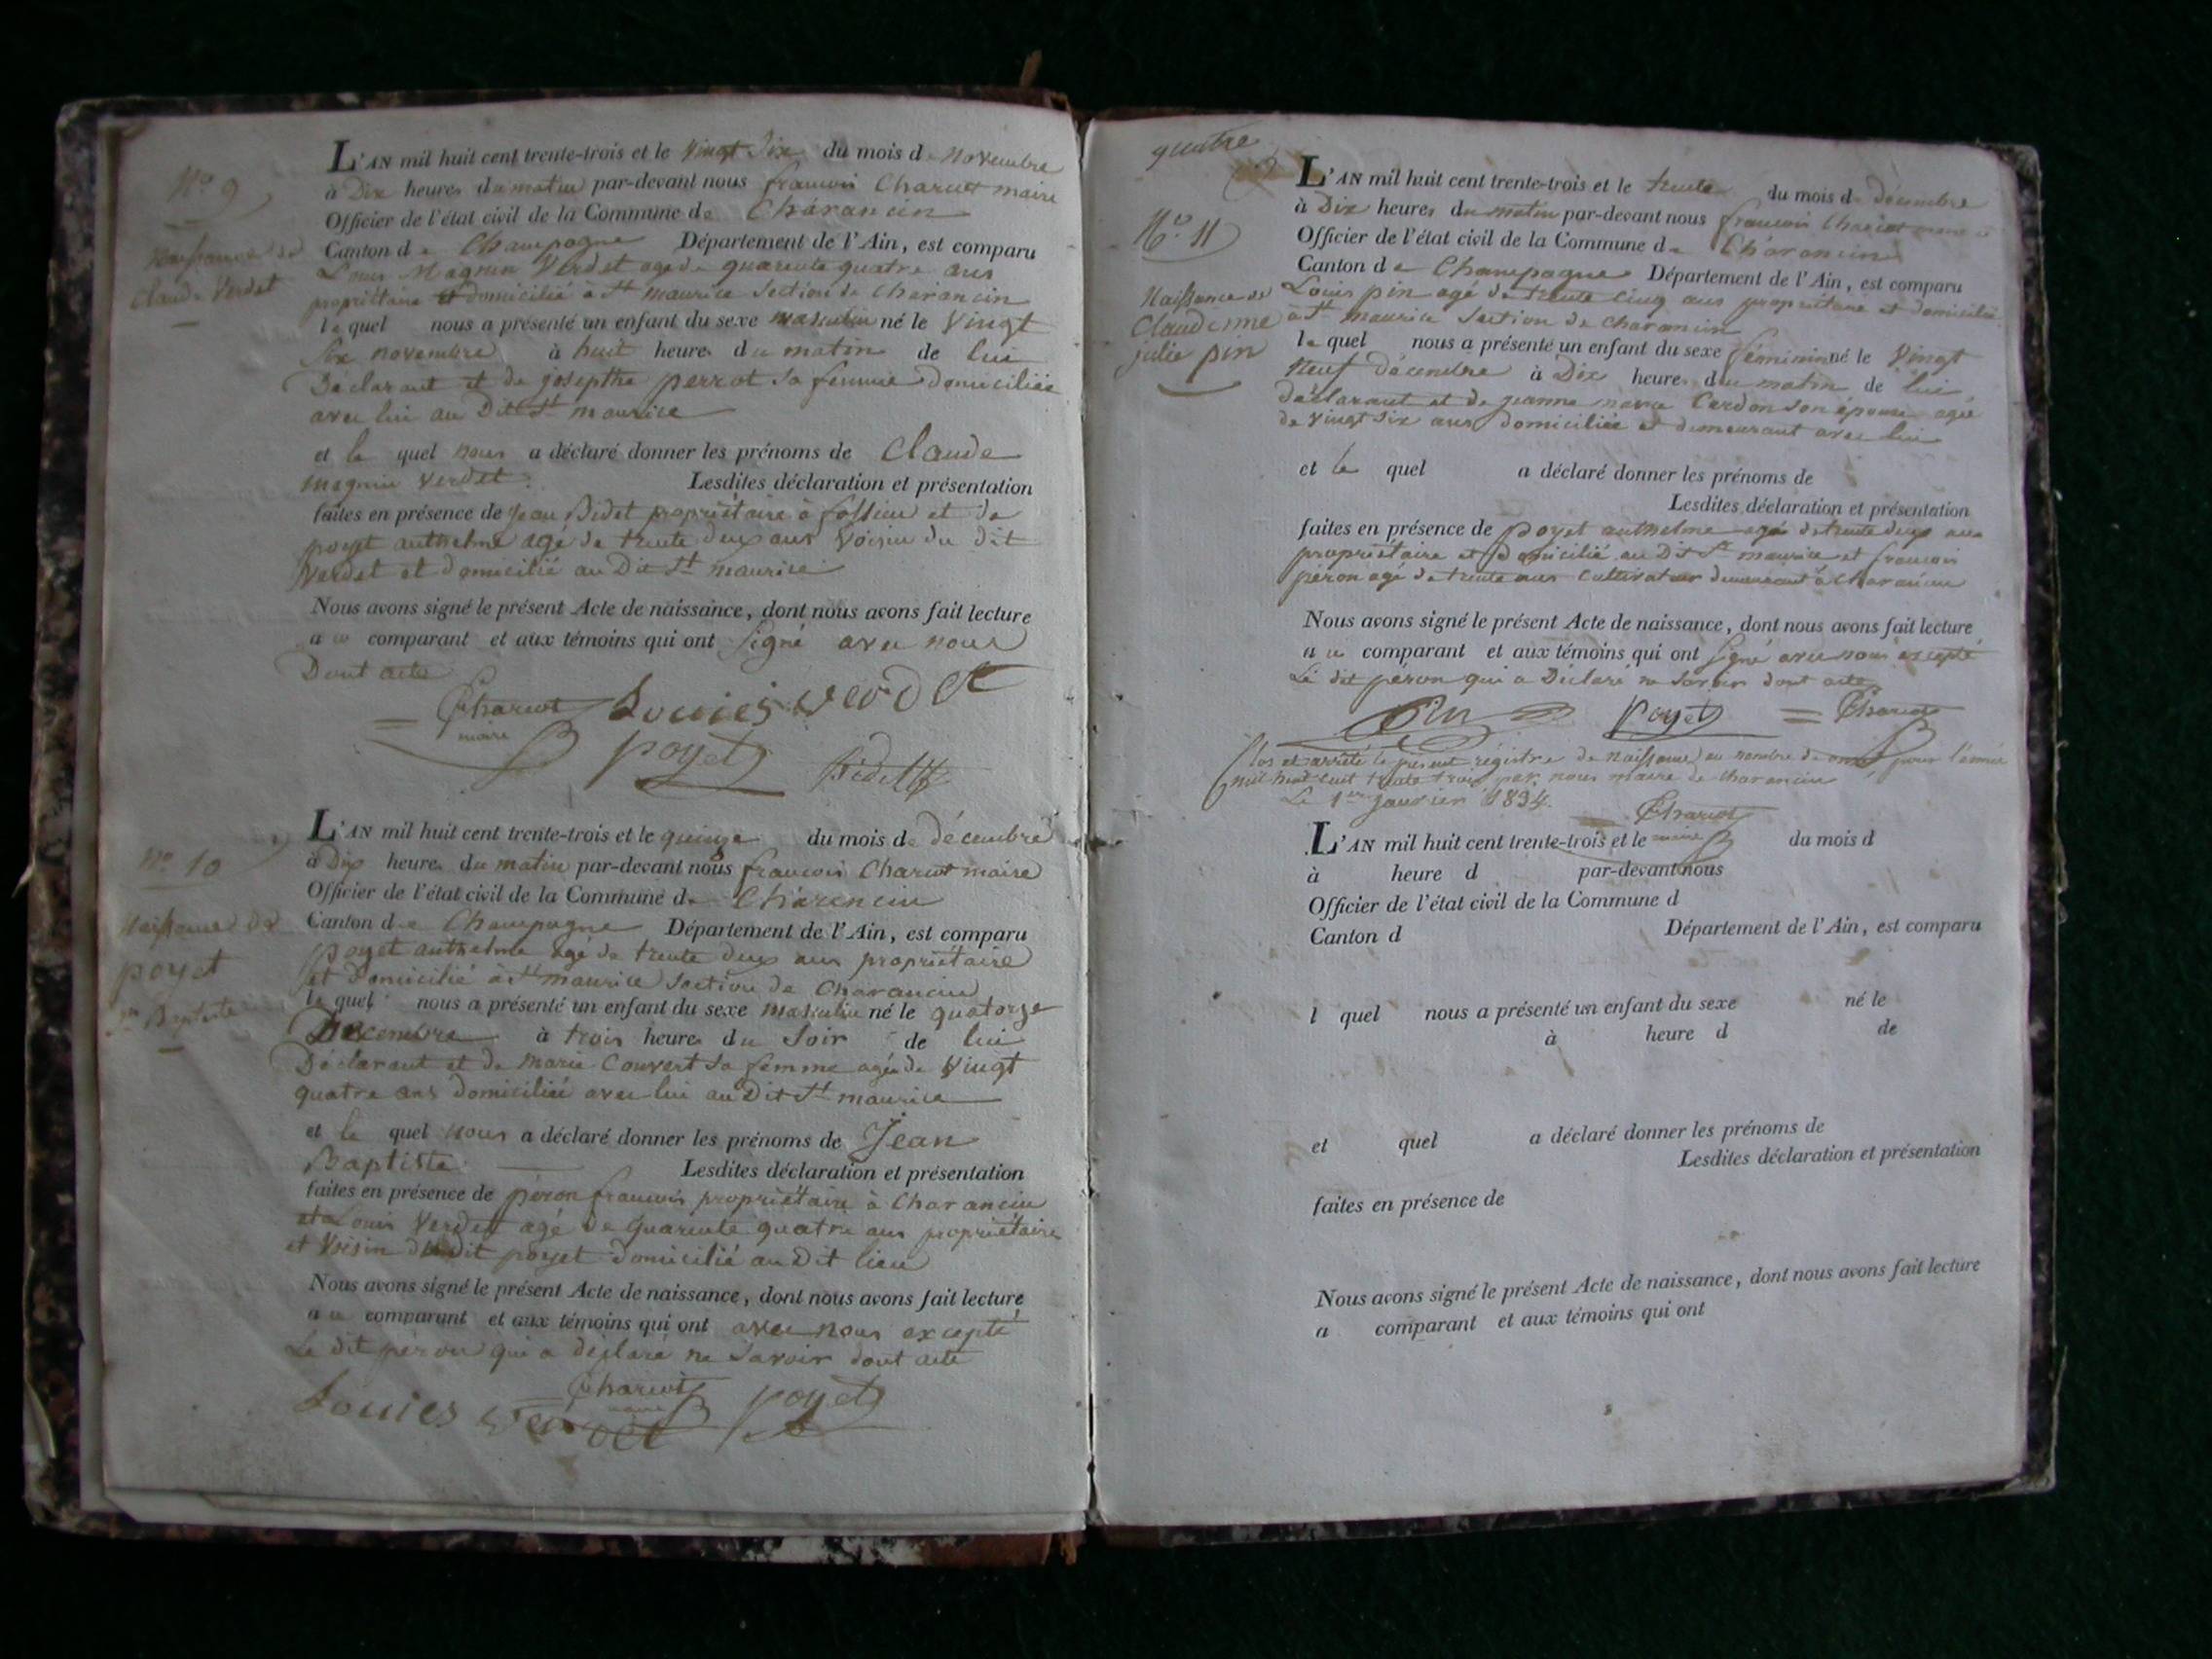 N.o 9
Naissance de
Claude Verdet
L'AN mil huit cent trente-trois et le vingt Six du mois de novembre
à Dix heures du matin par-devant nous francois Chariot maire
Officier de l'état civil de la Commune de Charancin
Canton de Champagne Département de l'Ain, est comparu
Louis Magnin Verdet agé de quarente quatre ans
propriettaire et domicilié à St maurice Section de Charancin
le quel nous a présenté un enfant du sexe masculin né le Vingt
Six novembre à huit heures du matin de lui
Déclarant et de josepthe perrot sa femme Domiciliée
avec lui au Dit St maurice
et le quel nous a déclaré donner les prénoms de Claude
magnin Verdet. Lesdites déclaration et présentation
faites en présence de jean Bidet propriétaire à fossieu et de
poyet anthelme agé de trente deux ans Voisin du dit
Verdet et domicilié au Dit St maurice
Nous avons signé le présent Acte de naissance, dont nous avons fait lecture
au comparant et aux témoins qui ont Signé avec nous
Dont acte
Chariot Louies verdet
maire
poyet Bidet
N.o 10
Naissance de
poyet
Jn Baptiste
L'AN mil huit cent trente-trois et le quinze du mois de décembre
à Dix heures du matin par-devant nous francois Chariot maire
Officier de l'état civil de la Commune de Charancin
Canton de Champagne Département de l'Ain, est comparu
poyet anthelme agé de trente deux ans propriétaire
et domicilié à St maurice Section de Charancin
le quel nous a présenté un enfant du sexe masculin né le quatorze
Décembre à trois heures du Soir de lui
Déclarant et de marie Couvert sa femme agée de Vingt
quatre ans domiciliée avec lui au Dit St maurice
et le quel nous a déclaré donner les prénoms de Jean
Baptiste. Lesdites déclaration et présentation
faites en présence de péron francois propriétaire à Charancin
et Louis Verdet agé de quarente quatre ans propriétaire
et Voisin du dit poyet domicilié au Dit lieu
Nous avons signé le présent Acte de naissance, dont nous avons fait lecture
au comparant et aux témoins qui ont avec nous excepté
Le dit péron qui a déclaré ne Savoir dont acte
Chariot poyet
maire
Louies verdet
quatre
N.o 11
Naissance de
Claudinne
julie pin
L'AN mil huit cent trente-trois et le trente du mois de décembre
à Dix heures du matin par-devant nous francois Chariot maire
Officier de l'état civil de la Commune de Charancin
Canton de Champagne Département de l'Ain, est comparu
Louis pin agé de trente cinq ans propriétaire et domicilié
à St maurice Section de Charancin
le quel nous a présenté un enfant du sexe féminin né le Vingt
Neuf décembre à Dix heures du matin de lui
déclarant et de jeanne Cardon son épouse agée
de Vingt Six ans domiciliée et demeurant avec lui
et le quel a déclaré donner les prénoms de
Lesdites déclaration et présentation
faites en présence de poyet anthelme agé de trente deux ans
propriétaire et domicilié au Dit St maurice et francois
péron agé de trente ans cultivateur demeurant à Charancin
Nous avons signé le présent Acte de naissance, dont nous avons fait lecture
au comparant et aux témoins qui ont Signé avec nous excepté
Le dit péron qui a Déclaré ne Savoir dont acte
Pin Poyet Chariot
Clos et arrêté le présent régistre de naissance au nombre de onze pour l'année
mil huit cent trente trois par nous maire de Charancin
Le 1er Janvier 1834.
Chariot
maire
L'AN mil huit cent trente-trois et le du mois d
à heure d par-devant nous
Officier de l'état civil de la Commune d
Canton d Département de l'Ain, est comparu
l quel nous a présenté un enfant du sexe né le
à heure d de
et quel a déclaré donner les prénoms de
Lesdites déclaration et présentation
faites en présence de
Nous avons signé le présent Acte de naissance, dont nous avons fait lecture
a comparant et aux témoins qui ont